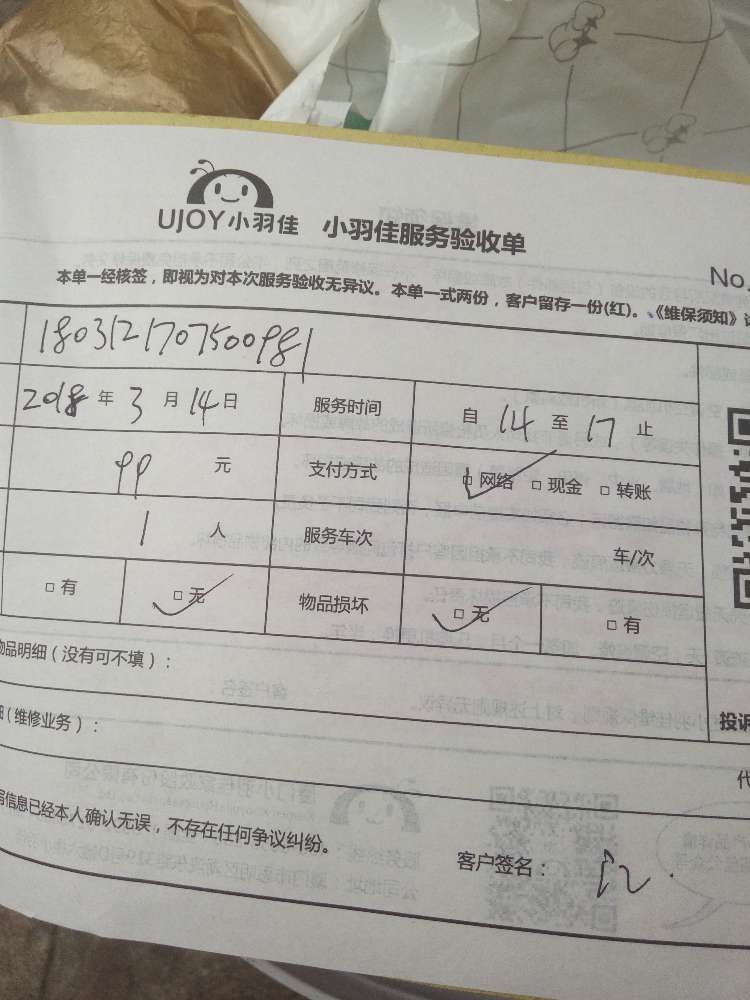 UJOY小羽佳 小羽佳服务验收单
No.
本单一经核签，即视为对本次服务验收无异议。本单一式两份，客户留存一份(红)。、《维保须知》
1803121707500981
2018 年 3 月 14 日 服务时间 自 14 至 17 止
99 元 支付方式 □ 网络 □ 现金 □ 转账
1 人 服务车次 车/次
□ 有 □ 无 物品损坏 □ 无 □ 有
物品明细（没有可不填）：
（维修业务）： 投诉
代
信息已经本人确认无误，不存在任何争议纠纷。
客户签名：